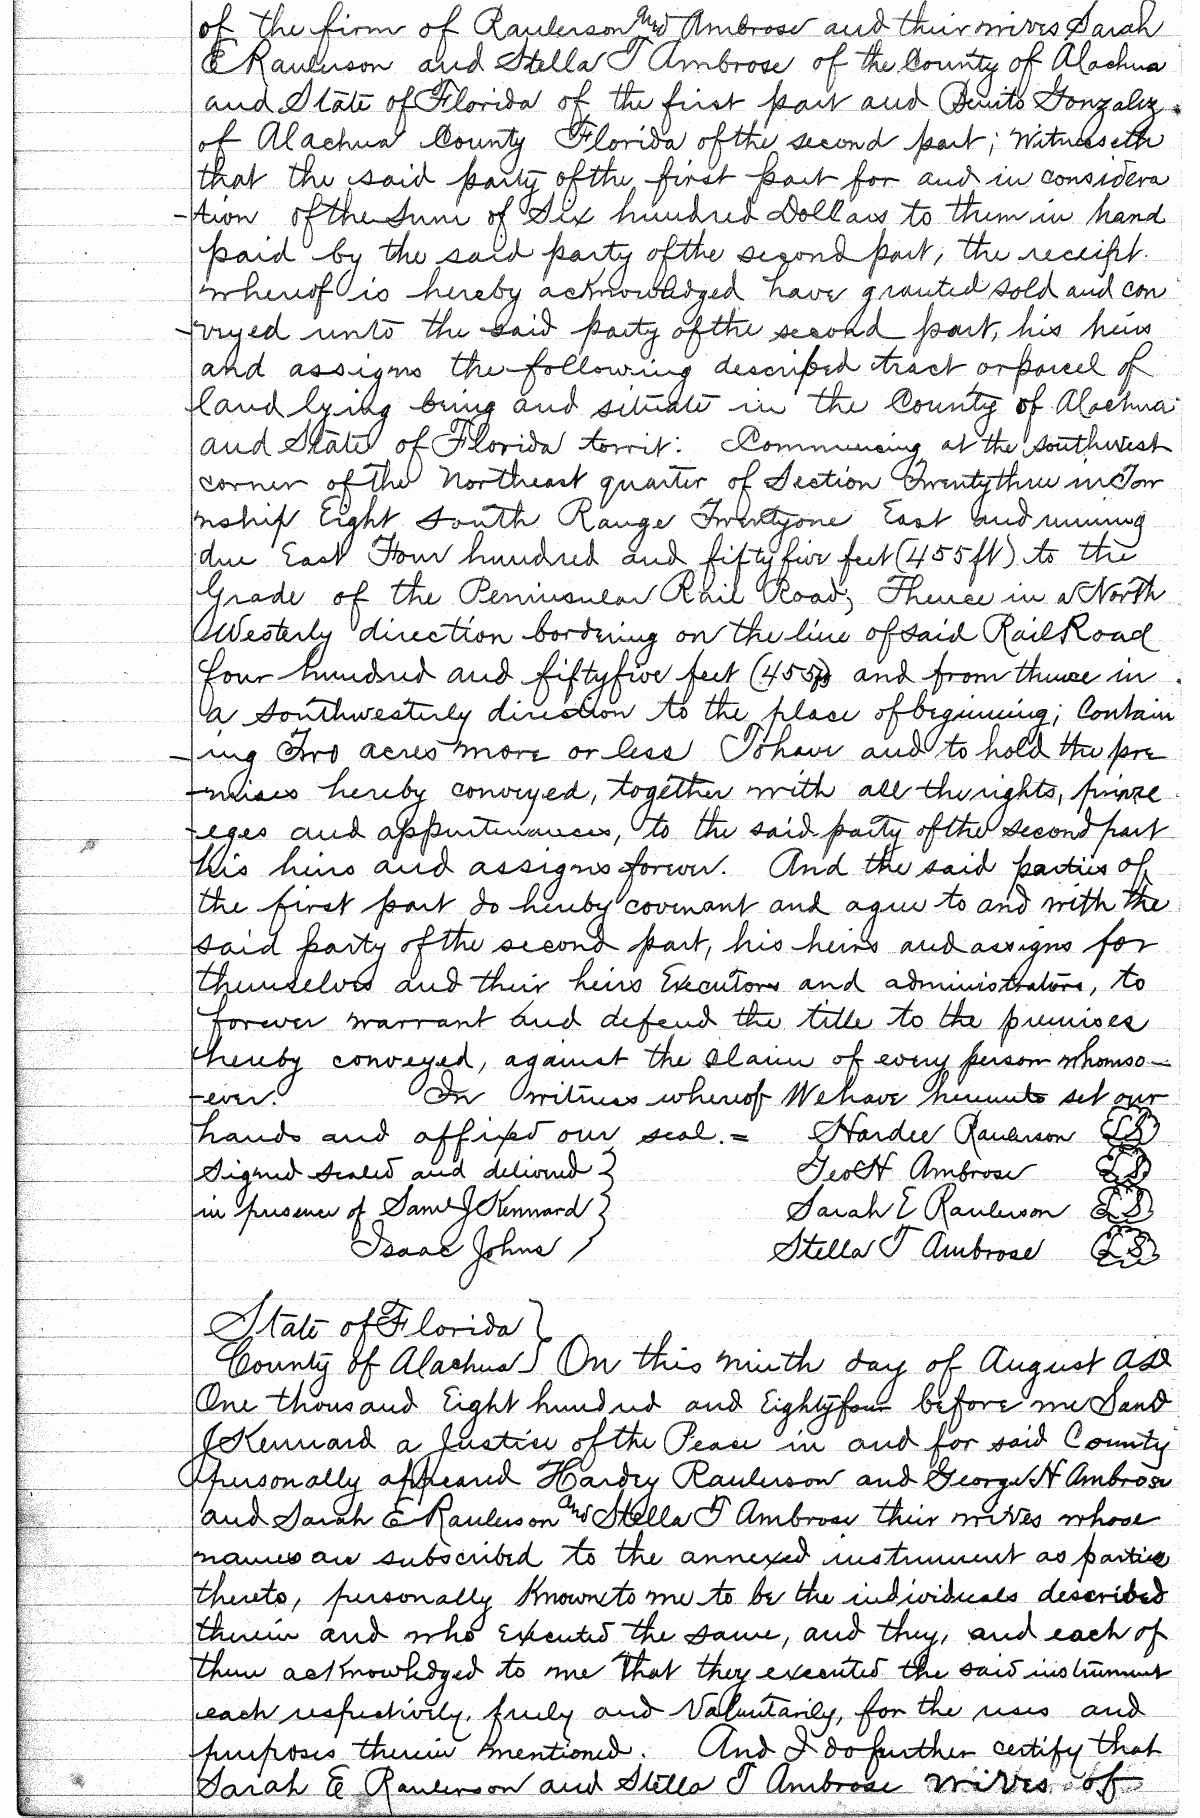 of the firm of Raulerson and Ambrose and their wives Sarah
E Raulerson and Stella T Ambrose of the County of Alachua
and State of Florida of the first part and Benito Gonzalez
of Alachua County Florida of the second part; Witnesseth
that the said party of the first part for and in considera
-tion of the Sum of Six hundred Dollars to them in hand
paid by the said party of the second part, the receipt
whereof is hereby acknowledged have granted sold and con
-veyed unto the said party of the second part, his heirs
and assigns the following described tract or parcel of
land lying being and situate in the County of Alachua
and State of Florida towit: Commencing at the southwest
corner of the Northeast quarter of Section Twentythree in Tow
nship Eight South Range Twentyone East and running
due East Four hundred and fiftyfive feet (455ft) to the
Grade of the Peninsular Rail Road; Thence in a North
Westerly direction bordering on the line of said RailRoad
four hundred and fiftyfive feet (455ft) and from thence in
a Southwesterly direction to the place of beginning; Contain
-ing Two acres more or less To have and to hold the pre
-mises hereby conveyed, together with all the rights, privile
-eges and appurtenances, to the said party of the second part
his heirs and assigns forever. And the said parties of
the first part do hereby covenant and agree to and with the
said party of the second part, his heirs and assigns for
themselves and their heirs Executors and administrators, to
forever warrant and defend the title to the premises
hereby conveyed, against the claim of every person whomso-
-ever. In witness whereof We have hereunto set our
hands and affixed our seal.= Hardee Raulerson LS
Signed sealed and delivered } Geo H Ambrose LS
in presence of Saml J Kennard } Sarah E Raulerson LS
Isaac Johns / Stella T Ambrose LS
State of Florida }
County of Alachua } On this ninth day of August AD
One thousand Eight hundred and Eightyfour before me Saml
J Kennard a Justice of the Peace in and for said County
personally appeared Hardey Raulerson and George H Ambrose
and Sarah E Raulerson and Stella T Ambrose their wives whose
names are subscribed to the annexed instrument as parties
thereto, personally Known to me to be the individuals described
therein and who executed the same, and they, and each of
them acknowledged to me that they executed the said instrument
each respectively, freely and Voluntarily, for the uses and
purposes therein mentioned. And I do further certify that
Sarah E Raulerson and Stella T Ambrose wives of